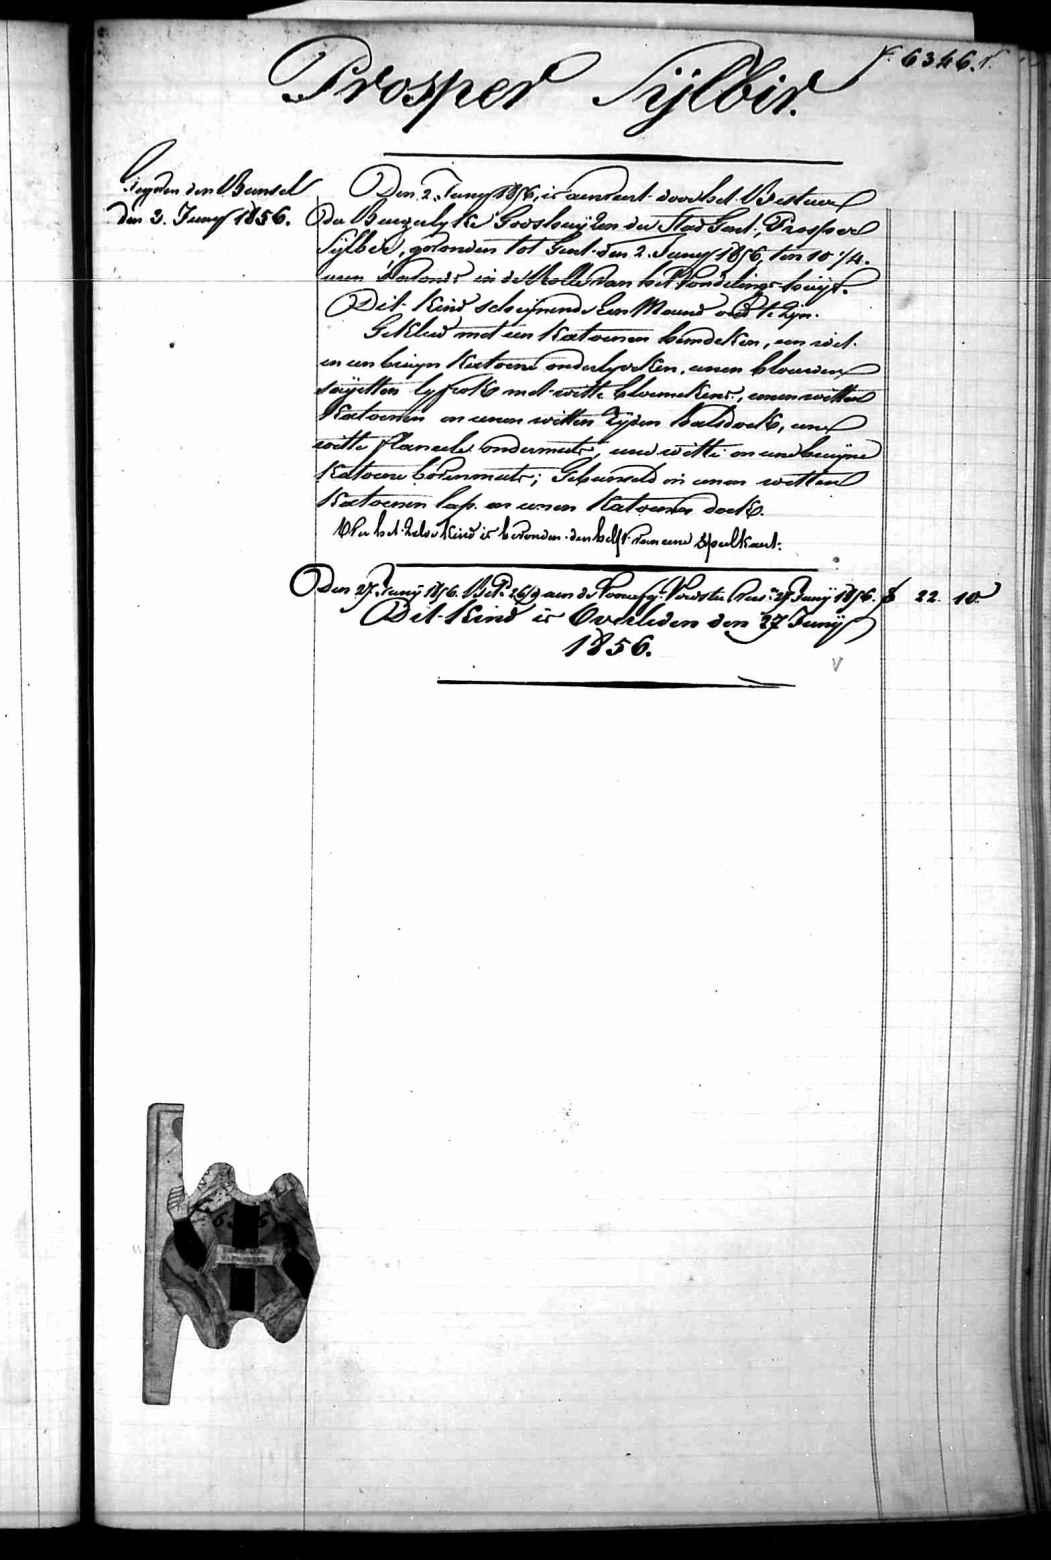 F. 6346. V.
Prosper Sijlbir.
Tegeven den Bunsel
den 3. Juny 1856.
Den 2. Juny 1856, is aenveert door het Bestuer
der Burgerlyke Godshuijzen der Stad Gent, Prosper
Sijlber, gevonden tot Gent den 2. Juny 1856, ten 10 1/4.
uren s'avonds in de Rolle van het Vondelings-huijs.
Dit Kind scheijnende Een Maend oud te zyn.
Gekleed met een Katoenen hemdeken, een wit
en een bruyn Katoene onderlyveken, eenen blouwen
saijetten lyfrok met witte bloemekens, eenen witten
Katoenen en eenen witten zyden halsdoek, eene
witte flanele ondermuts, eene witte en eene bruyne
Katoene bovenmuts; Gebunseld in eenen witten
Katoenen lap en eenen Katoenen doek.
Op het zelve Kind is bevonden den helft van eene Speelkaert.
Den 27. Juny 1856. Bet. 2619 aen de Voedster 27 Juny 1856. 22 10
Dit Kind is Overleden den 27 Junij
1856.